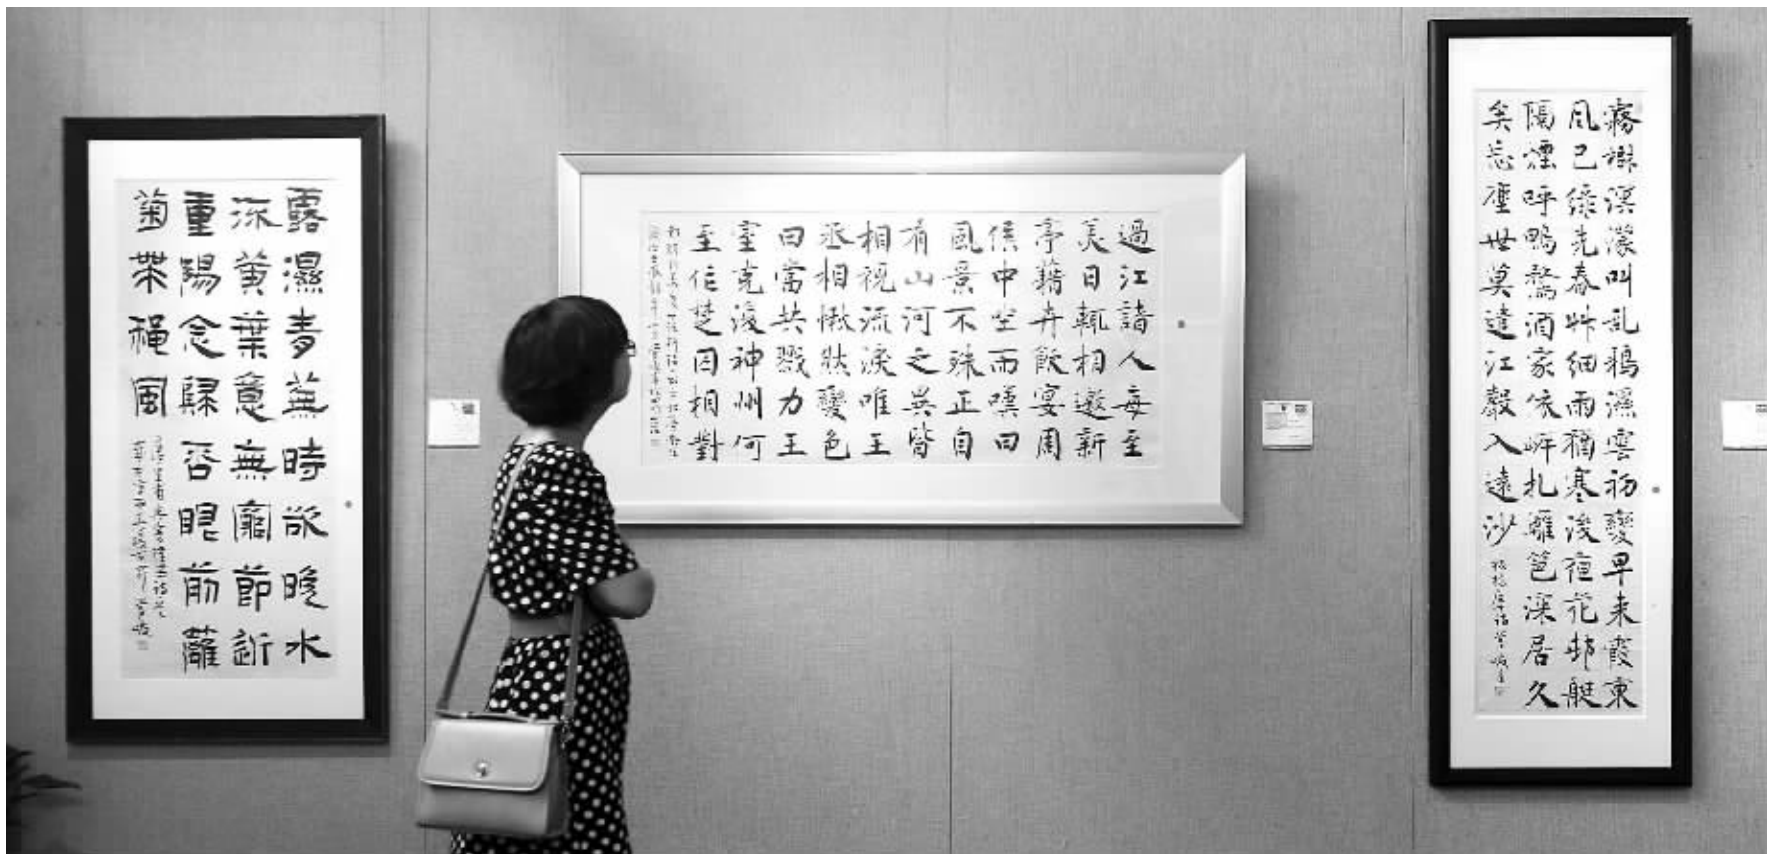 露濕青蕪時欲晚水
流黃葉意無窮節近
重陽念歸否眼前籬
菊帶穐風
過江諸人每至
美日輒相邀新
亭藉卉飲宴周
侯中坐而嘆曰
風景不殊正自
有山河之異皆
相視流淚唯王
丞相愀然變色
曰當共戮力王
室克復神州何
至作楚囚相對
霧樹溟濛叫乱鴉濕雲初變早來霞東
風已綠先春艸細雨猶寒後夜花邨艇
隔煙呼鴨鶩酒家依岸扎籬笆深居久
矣忘塵世莫遣江聲入遠沙